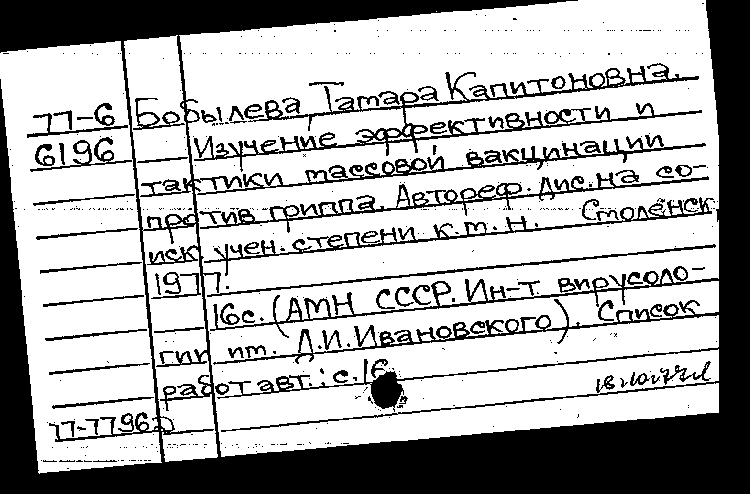 77-6 Бобылева, Тамара Капитоновна.
6196 Изучение эффективности и
тактики массовой вакцинации
против гриппа. Автореф. дис. на со-
иск. учен. степени к.м.н. Смоленск,
1977.
16с. (АМН СССР. Ин-т вирусоло-
гии им. Д.И.Ивановского). Список
работ авт.: с.16
77-7796